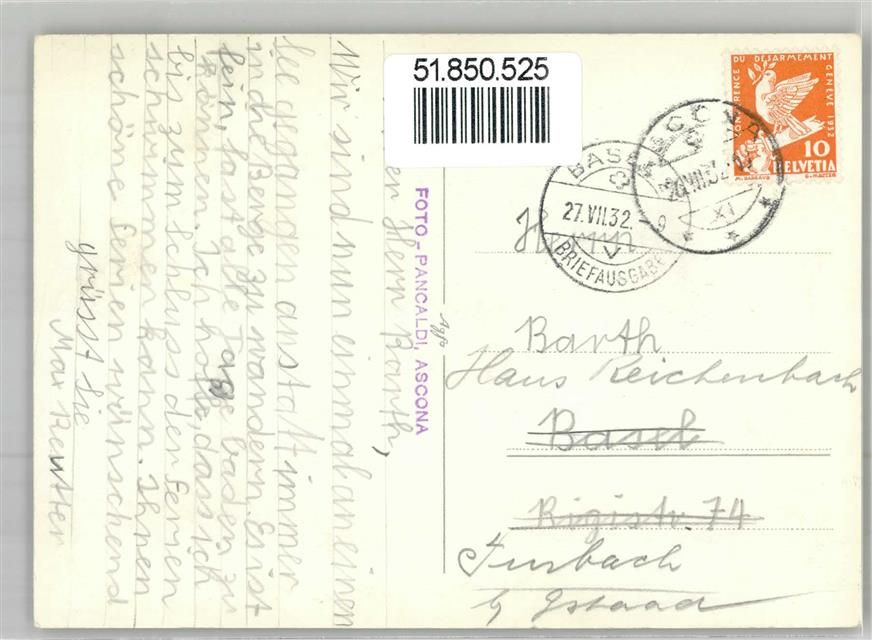 51.850.525
CONFERENCE DU DESARMEMENT GENEVE 1932
10
HELVETIA
ASCONA
26.VII.32
XI
BASEL
27.VII.32.
9
V
BRIEFAUSGABE
FOTO-PANCALDI, ASCONA
Agfa
Herrn
Barth
Haus Reichenbach
Basel
Rigistr. 74
Turbach
b/ Gstaad
Herr Barth,
Wir sind nun einmal an einen
See gegangen anstatt immer
in die Berge zu wandern. Es ist
fein, fast alle Tage baden zu
können. Ich hoffe, dass ich
bis zum Schluss der Ferien
schwimmen kann. Ihnen
schöne Ferien wünschend
grüsst Sie
Max Reutter